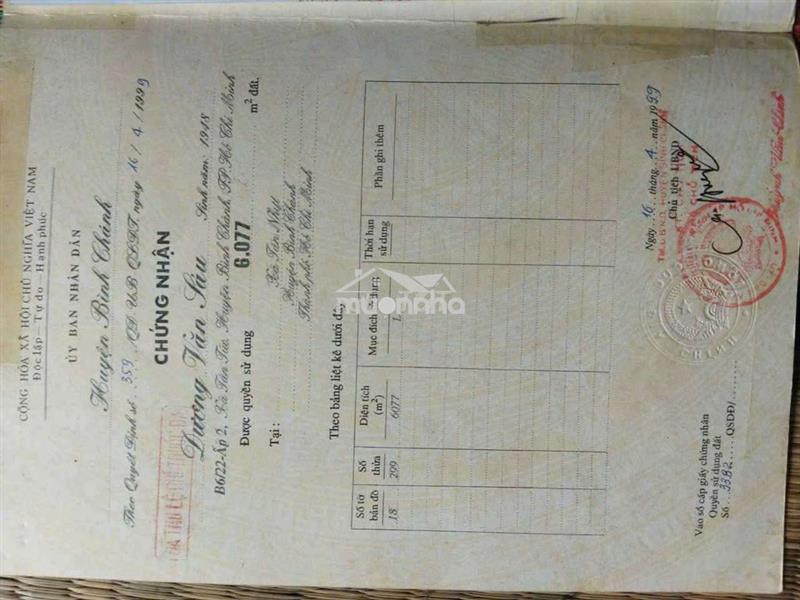 CỘNG HÒA XÃ HỘI CHỦ NGHĨA VIỆT NAM
Độc lập - Tự do - Hạnh phúc
ỦY BAN NHÂN DÂN
Huyện Bình Chánh
Theo Quyết Định số: 359 /QĐ-UB QSDĐ, ngày 16/4/1999
CHỨNG NHẬN
ĐÃ THU LỆ PHÍ TRƯỚC BẠ
Dương Văn Sáu Sinh năm: 1948
B6/22-Ấp 2, Xã Tân Túc, Huyện Bình Chánh, TP. Hồ Chí Minh
Được quyền sử dụng 6.077 m² đất.
Tại: Xã Tân Nhựt
Huyện Bình Chánh
Thành phố Hồ Chí Minh
muonnha
Theo bảng liệt kê dưới đây
Số tờ bản đồ Số thửa Diện tích (m²) Mục đích Thời hạn sử dụng Phần ghi thêm
18 299 6077 L
Ngày 16 tháng 4 năm 1999
TM. UBND HUYỆN BÌNH CHÁNH
Chủ tịch UBND
Vào sổ cấp giấy chứng nhận
Quyền sử dụng đất
Số 3382 QSDĐ/